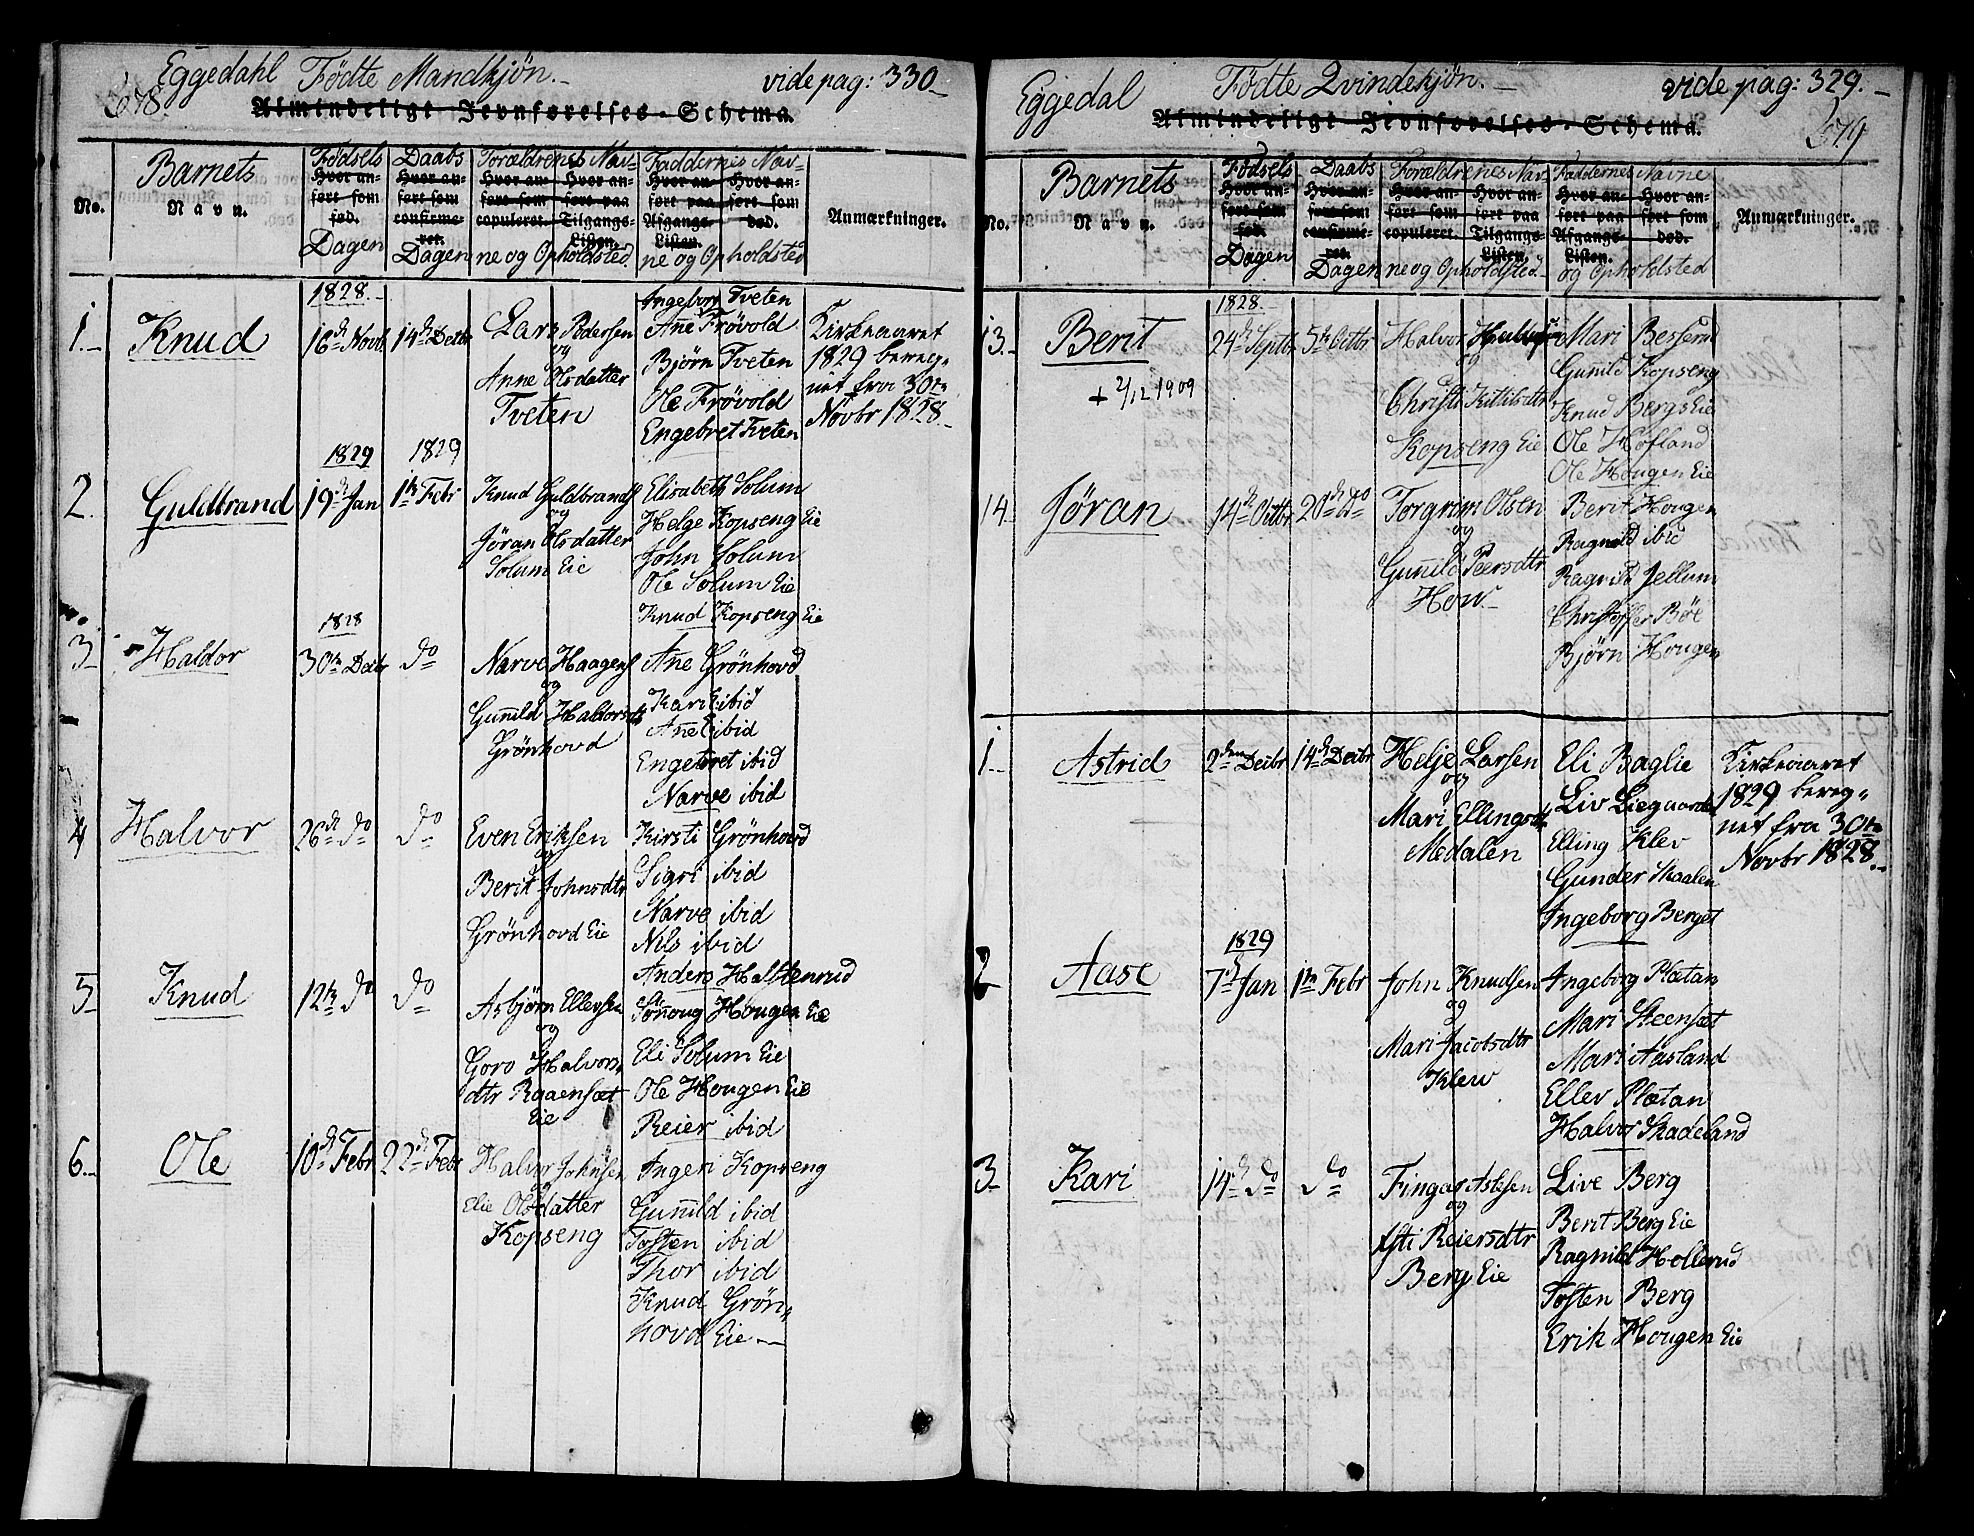 Eggedahl Födte Mandkjön. vide pag: 330
678.
Almindeligt Jevnførelses-Schema.
No.
Barnets
Navn.
Födsels
Hvor an-
ført som
fød.
Dagen
Daabs
Hvor an-
ført som
confirme-
ret.
Dagen
Forældrenes Nav-
Hvor an- Hvor an-
ført som ført paa
copuleret. Tilgangs-
Listen.
ne og Opholdsted
Faddernes Nav-
Hvor an- Hvor an-
ført paa ført som
Afgangs- død.
Listen.
ne og Opholdsted
Anmærkninger.
1828.
1. Knud 16de Novb. 14de Decbr
Lars Pedersen
og
Anne Olsdatter
Tveten
Ingeborg Tveten
Ane Frövold
Bjørn Tveten
Ole Frövold
Engebret Tveten
Kirkeaaret
1829 bereg-
net fra 30te
Novbr 1828.
1829 1829
2. Guldbrand 19de Jan 1te Febr
Knud Guldbrands
og
Jöran Olsdatter
Solum Eie
Elisabeth Solum
Helge Kopseng Eie
John Solum
Ole Solum Eie
Knud Kopseng Eie
1828
3 Haldor 30te Decbr do
Narve Haagens
og
Gunild Haldorsdtr
Grönhovd
Ane Grönhovd
Kari ibid
Ane ibid
Engebret ibid
Narve ibid
4 Halvor 26de do do
Even Eriksen
og
Berit Johnsdtr
Grönhovd Eie
Kirsti Grönhovd
Sigri ibid
Narve ibid
Nils ibid
Anders Haltenrud
5 Knud 12te do do
Asbjørn Ellevsen
og
Goro Halvors-
dtr Raaensæt
Eie
Sönoug Hougen Eie
Eli Solum Eie
Ole Hougen Eie
Reier ibid
6. Ole 10de Febr 22de Febr
Halvor Johnsen
og
Elie Olsdatter
Kopseng
Ingeri Kopseng
Gunild ibid
Tosten ibid
Thor ibid
Knud Grön-
hovd Eie
Eggedal Födte Qvindekjön. vide pag: 329.
679
Almindeligt Jevnførelses-Schema.
No.
Barnets
Navn.
Födsels
Hvor an-
ført som
fød.
Dagen
Daabs
Hvor an-
ført som
confirme-
ret.
Dagen
Forældrenes Nav-
Hvor an- Hvor an-
ført som ført paa
copuleret. Tilgangs-
Listen.
ne og Opholdsted
Faddernes Navne
Hvor an- Hvor an-
ført paa ført som
Afgangs- død.
Listen.
og Opholdsted
Anmærkninger.
1828.
13. Berit 24de Septbr 5te Octbr
+ 2/12 1909
Halvor
og
Christi Kittilsdtr
Kopseng Eie
Mari
Gunild Kopseng
Knud Bergs Eie
Ole Hofland
Ole Hougen Eie
14. Jøran 14de Octbr 20de do
Torgrim Olsen
og
Gunild Peersdtr
How
Berit Hougen
Ragnild ibid
Ragnild Jellum
Christoffer Böe
Bjørn Hougen
1. Astrid 2den Decbr 14de Decbr
Helje Larsen
og
Mari Ellingsdtr
Medalen
Eli Baglie
Liv Liegaarden
Elling Klev
Gunder Skaalen
Ingeborg Berget
Kirkeaaret
1829 bereg-
net fra 30te
Novbr 1828.
1829
2 Aase 7de Jan 1te Febr
John Knudsen
og
Mari Jacobsdtr
Klew
Ingeborg Plætan
Mari Steensæt
Mari Aasland
Ellev Plætan
Halvor Skadeland
3. Kari 14de do do
Fingar Aslesen
og
Asti Reiersdtr
Berg Eie
Live Berg
Berit Berg Eie
Ragnild Hollerud
Tosten Berg
Erik Hougen Eie